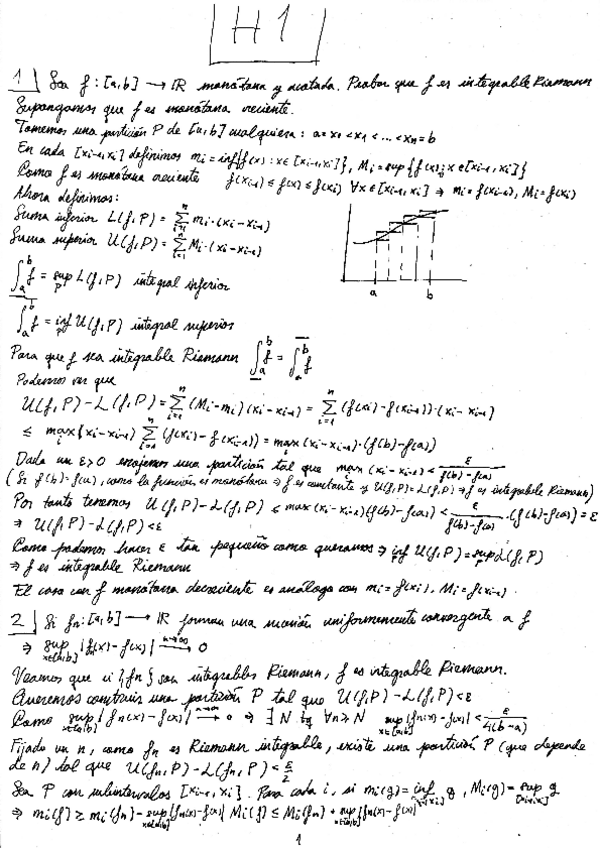 H1
1 Sea f: [a,b] → ℝ monótona y acotada. Probar que f es integrable Riemann
Supongamos que f es monótona creciente.
Tomemos una partición P de [a,b] cualquiera: a = x₀ < x₁ < ... < xₙ = b
En cada [xᵢ₋₁, xᵢ] definimos mᵢ = inf{f(x) : x ∈ [xᵢ₋₁, xᵢ]}, Mᵢ = sup{f(x) : x ∈ [xᵢ₋₁, xᵢ]}
Como f es monótona creciente f(xᵢ₋₁) ≤ f(x) ≤ f(xᵢ) ∀x ∈ [xᵢ₋₁, xᵢ] ⇒ mᵢ = f(xᵢ₋₁), Mᵢ = f(xᵢ)
Ahora definimos:
Suma inferior L(f,P) = ∑ᵢ₌₁ⁿ mᵢ·(xᵢ - xᵢ₋₁)
Suma superior U(f,P) = ∑ᵢ₌₁ⁿ Mᵢ·(xᵢ - xᵢ₋₁)
a b
∫ₐᵇ f = sup_P L(f,P) integral inferior
∫ₐᵇ f = inf_P U(f,P) integral superior
Para que f sea integrable Riemann ∫ₐᵇ f = ∫ₐᵇ f
Podemos ver que
U(f,P) - L(f,P) = ∑ᵢ₌₁ⁿ (Mᵢ - mᵢ)(xᵢ - xᵢ₋₁) = ∑ᵢ₌₁ⁿ (f(xᵢ) - f(xᵢ₋₁))·(xᵢ - xᵢ₋₁)
≤ max(xᵢ - xᵢ₋₁) ∑ᵢ₌₁ⁿ (f(xᵢ) - f(xᵢ₋₁)) = max(xᵢ - xᵢ₋₁)·(f(b) - f(a))
Dado un ε>0 escojemos una partición tal que max(xᵢ - xᵢ₋₁) < ε/(f(b) - f(a))
(Si f(b) = f(a), como la función es monótona ⇒ f es constante y U(f,P) = L(f,P) ⇒ f es integrable Riemann)
Por tanto tenemos U(f,P) - L(f,P) ≤ max(xᵢ - xᵢ₋₁)(f(b) - f(a)) < ε/(f(b) - f(a))·(f(b) - f(a)) = ε
⇒ U(f,P) - L(f,P) < ε
Como podemos hacer ε tan pequeño como queramos ⇒ inf_P U(f,P) = sup_P L(f,P)
⇒ f es integrable Riemann
El caso con f monótona decreciente es análogo con mᵢ = f(xᵢ), Mᵢ = f(xᵢ₋₁).
2 Si fₙ: [a,b] → ℝ forman una sucesión uniformemente convergente a f
⇒ sup_{x∈[a,b]} |fₙ(x) - f(x)| →^{n→∞} 0
Veamos que si {fₙ} son integrables Riemann, f es integrable Riemann.
Queremos construir una partición P tal que U(f,P) - L(f,P) < ε
Como sup_{x∈[a,b]} |fₙ(x) - f(x)| →^{n→∞} 0 ⇒ ∃ N tq ∀n ≥ N sup_{x∈[a,b]} |fₙ(x) - f(x)| < ε/(4(b-a))
Fijado un n, como fₙ es Riemann integrable, existe una partición P (que depende
de n) tal que U(fₙ,P) - L(fₙ,P) < ε/2
Sea P con subintervalos [xᵢ₋₁, xᵢ]. Para cada i, si mᵢ(g) = inf_{[xᵢ₋₁,xᵢ]} g, Mᵢ(g) = sup_{[xᵢ₋₁,xᵢ]} g
⇒ mᵢ(f) ≥ mᵢ(fₙ) - sup_{x∈[a,b]} |fₙ(x) - f(x)| Mᵢ(f) ≤ Mᵢ(fₙ) + sup_{x∈[a,b]} |fₙ(x) - f(x)|
1